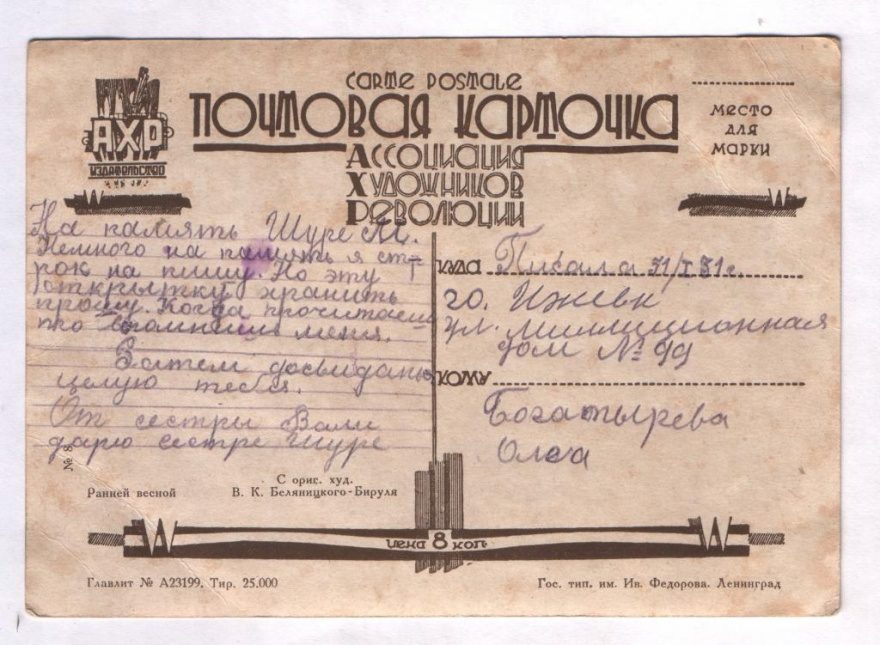 CARTE POSTALE
ПОЧТОВАЯ КАРТОЧКА
АССОЦИАЦИЯ
ХУДОЖНИКОВ
РЕВОЛЮЦИИ
АХР
ИЗДАТЕЛЬСТВО
МЕСТО
ДЛЯ
МАРКИ
На память Шуре М.
Немного на память я ст-
рок на пишу. Но эту
открытку хранить
прошу. Когда прочитаеш
то вспомниш меня.
Затем досвидань
целую тебя.
От сестры Вали
дарю сестре Шуре
№ 8
Ранней весной
С ориг. худ.
В. К. Беляницкого-Бируля
КУДА Писала 31/I 31 г.
го. Ижевк
ул. Миллиционная
дом № 99
КОМУ
Богатырева
Олга
цена 8 коп.
Главлит № А23199. Тир. 25.000
Гос. тип. им. Ив. Федорова. Ленинград